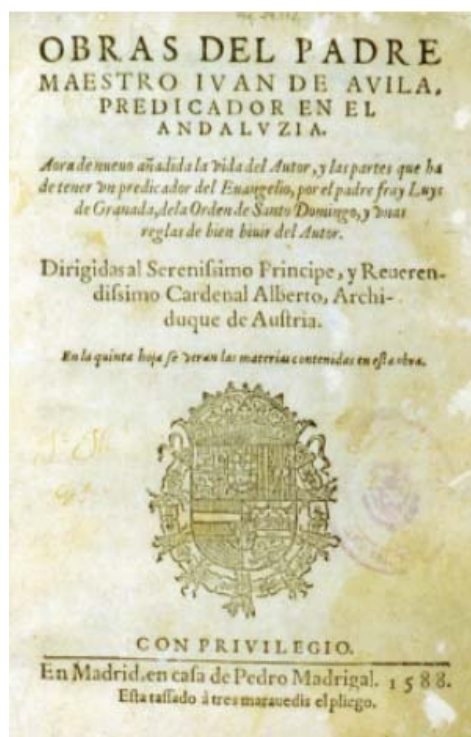 OBRAS DEL PADRE
MAESTRO IVAN DE AVILA,
PREDICADOR EN EL
ANDALVZIA.
Aora de nueuo añadida la vida del Autor, y las partes que ha
de tener vn predicador del Euangelio, por el padre fray Luys
de Granada, de la Orden de Santo Domingo, y vnas
reglas de bien biuir del Autor.
Dirigidas al Sereniſsimo Principe, y Reueren-
diſsimo Cardenal Alberto, Archi-
duque de Auſtria.
En la quinta hoja ſe veran las materias contenidas en eſta obra.
CON PRIVILEGIO.
En Madrid, en caſa de Pedro Madrigal. 1588.
Eſta taſſado à tres marauedis el pliego.